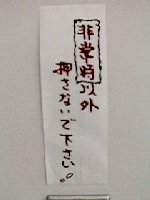 非常時以外
押さないで下さい。